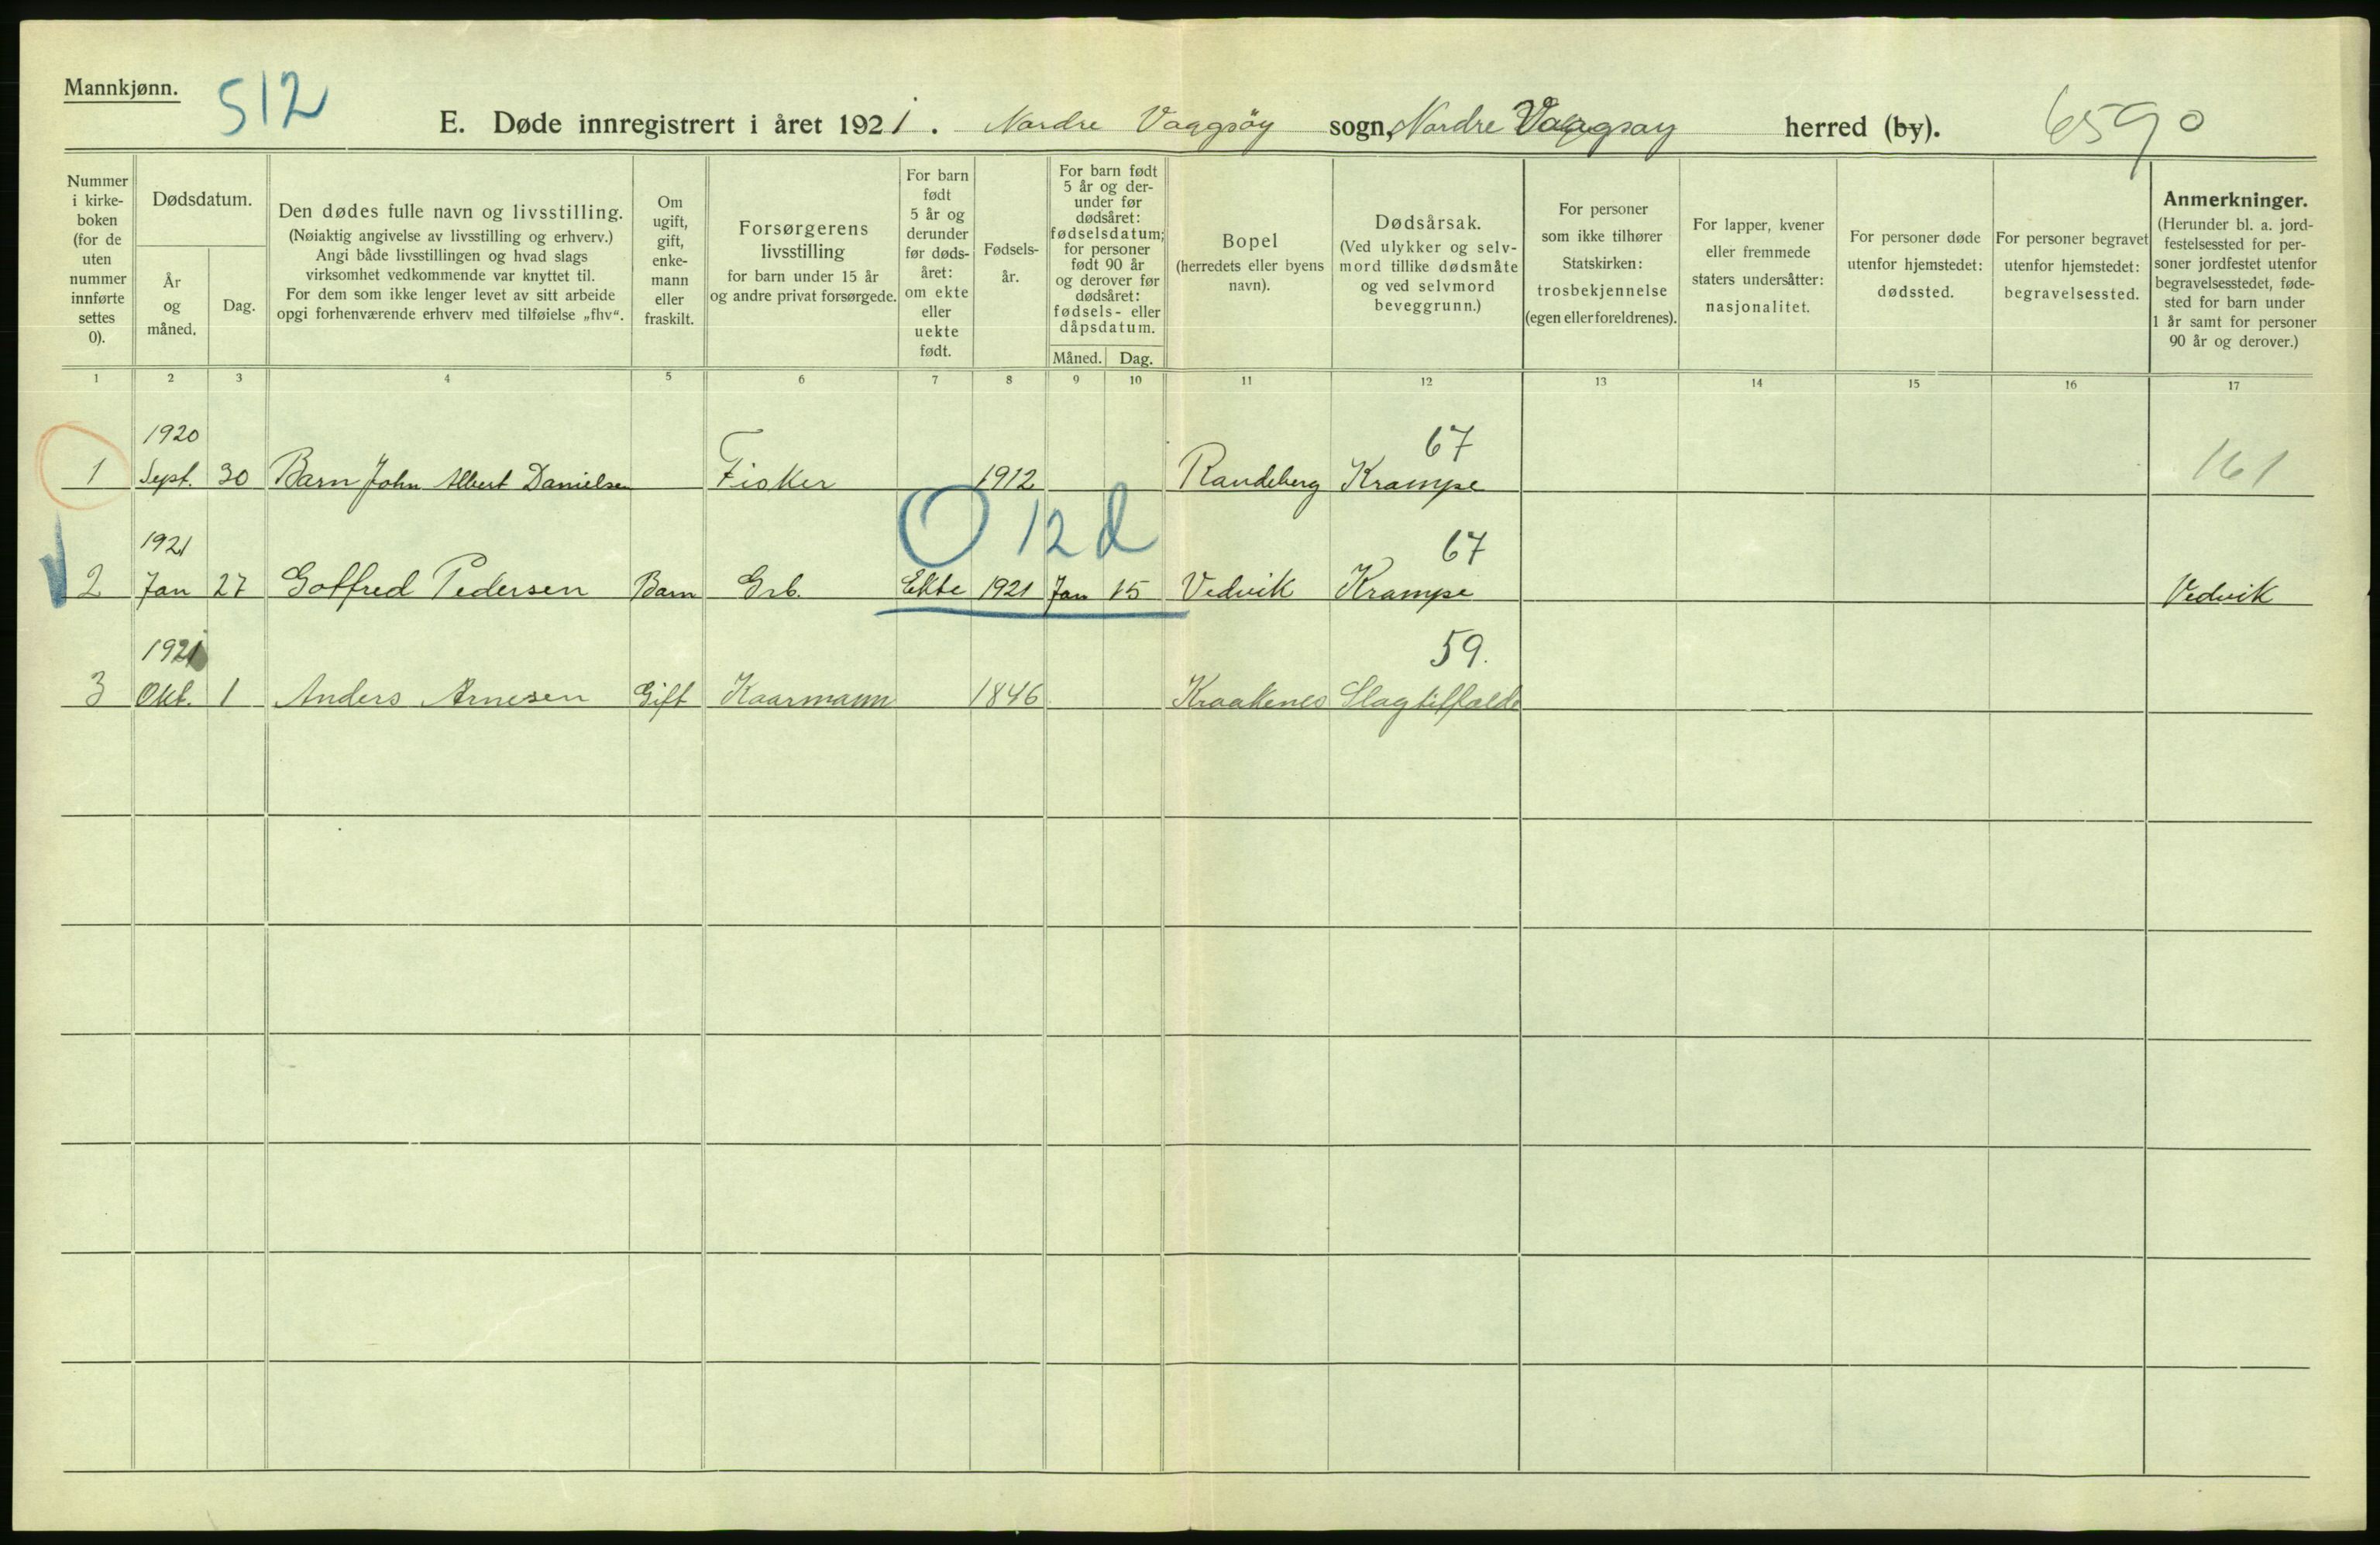 Mannkjønn.
512
E. Døde innregistrert i året 1921. Nordre Vaagsöy sogn, Nordre Vaagsøy herred (by).
6590
Nummer i kirkeboken (for de uten nummer innførte settes 0).
Dødsdatum.
År og måned.
Dag.
Den dødes fulle navn og livsstilling.
(Nøiaktig angivelse av livsstilling og erhverv.)
Angi både livsstillingen og hvad slags
virksomhet vedkommende var knyttet til.
For dem som ikke lenger levet av sitt arbeide
opgi forhenværende erhverv med tilføielse „fhv“.
Om ugift, gift, enkemann eller fraskilt.
Forsørgerens
livsstilling
for barn under 15 år
og andre privat forsørgede.
For barn født 5 år og derunder før dødsåret: om ekte eller uekte født.
Fødselsår.
For barn født 5 år og derunder før dødsåret: fødselsdatum; for personer født 90 år og derover før dødsåret: fødsels- eller dåpsdatum.
Måned. Dag.
Bopel
(herredets eller byens
navn).
Dødsårsak.
(Ved ulykker og selvmord tillike dødsmåte
og ved selvmord
beveggrunn.)
For personer
som ikke tilhører
Statskirken:
trosbekjennelse
(egen eller foreldrenes).
For lapper, kvener
eller fremmede
staters undersåtter:
nasjonalitet.
For personer døde
utenfor hjemstedet:
dødssted.
For personer begravet
utenfor hjemstedet:
begravelsessted.
Anmerkninger.
(Herunder bl. a. jordfestelsessted for personer jordfestet utenfor begravelsesstedet, fødested for barn under 1 år samt for personer 90 år og derover.)
1 2 3 4 5 6 7 8 9 10 11 12 13 14 15 16 17
1920 67
1 Sept. 30 Barn John Albert Danielsen Fisker 1912 Randeberg Krampe 161
O 12 d
1921 67
2 Jan 27 Gotfred Pedersen Barn Grb. Ekte 1921 Jan 15 Vedvik Krampe Vedvik
1921 59.
3 Okt. 1 Anders Arnesen Gift Kaarmann 1846 Kraakenes Slagtilfælde